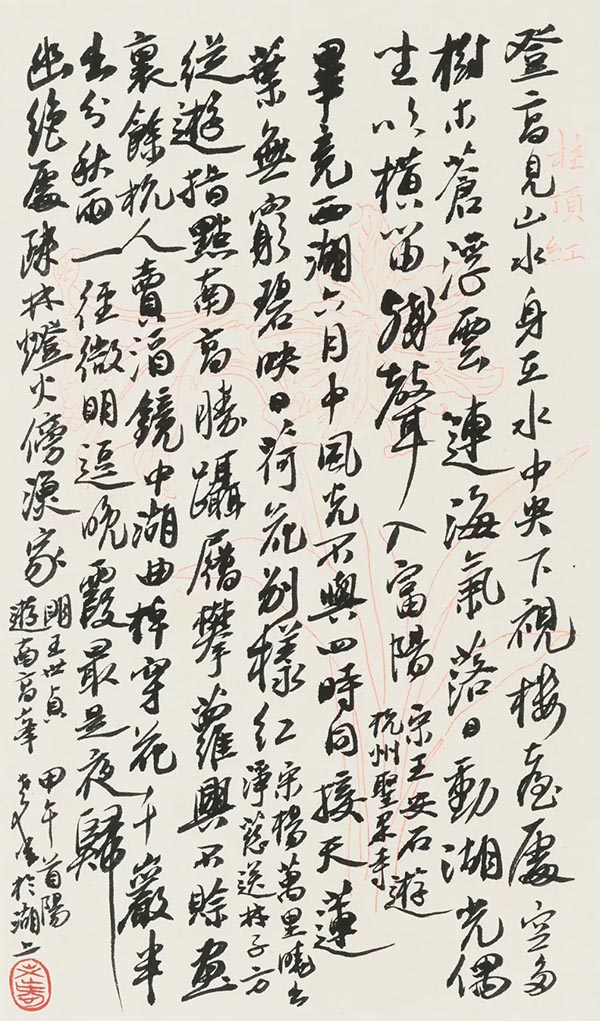 柱頂紅
登高見山水身在水中央下視樓臺處空多
樹木蒼浮雲連海氣落日動湖光偶
坐吹橫笛殘聲入富陽
宋王安石遊
杭州聖果寺
畢竟西湖六月中風光不與四時同接天蓮
葉無窮碧映日荷花別樣紅
宋楊萬里曉出
淨慈送林子方
從遊指點南高勝躡屩攀蘿興不賒畫
裏餘杭人賣酒鏡中湖曲棹穿花千巖半
出分秋雨一徑微明逗晚霞最是夜歸
幽絕處疎林燈火傍漁家
明王世貞
遊南高峯
甲午首陽
於湖上